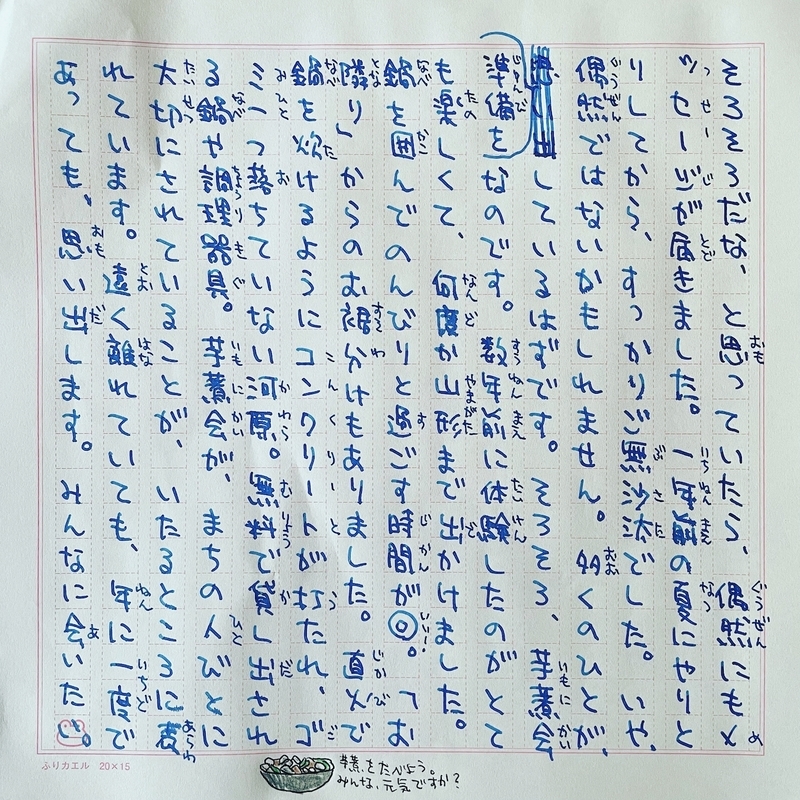 そろそろだな、と思っていたら、偶然にもメ
ッセージが届きました。一年前の夏にやりと
りしてから、すっかりご無沙汰でした。いや、
偶然ではないかもしれません。多くのひとが、
準備をしているはずです。そろそろ、芋煮会
なのです。数年前に体験したのがとて
も楽しくて、何度か山形まで出かけました。
鍋を囲んでのんびりと過ごす時間が◎。「お
隣り」からのお裾分けもありました。直火で
鍋を炊けるようにコンクリートが打たれ、ゴ
ミ一つ落ちていない河原。無料で貸し出され
る鍋や調理器具。芋煮会が、まちの人びとに
大切にされていることが、いたるところに表
れています。遠く離れていても、年に一度で
あっても、思い出します。みんなに会いたい。
ふりカエル 20×15
芋煮をたべよう。
みんな、元気ですか？